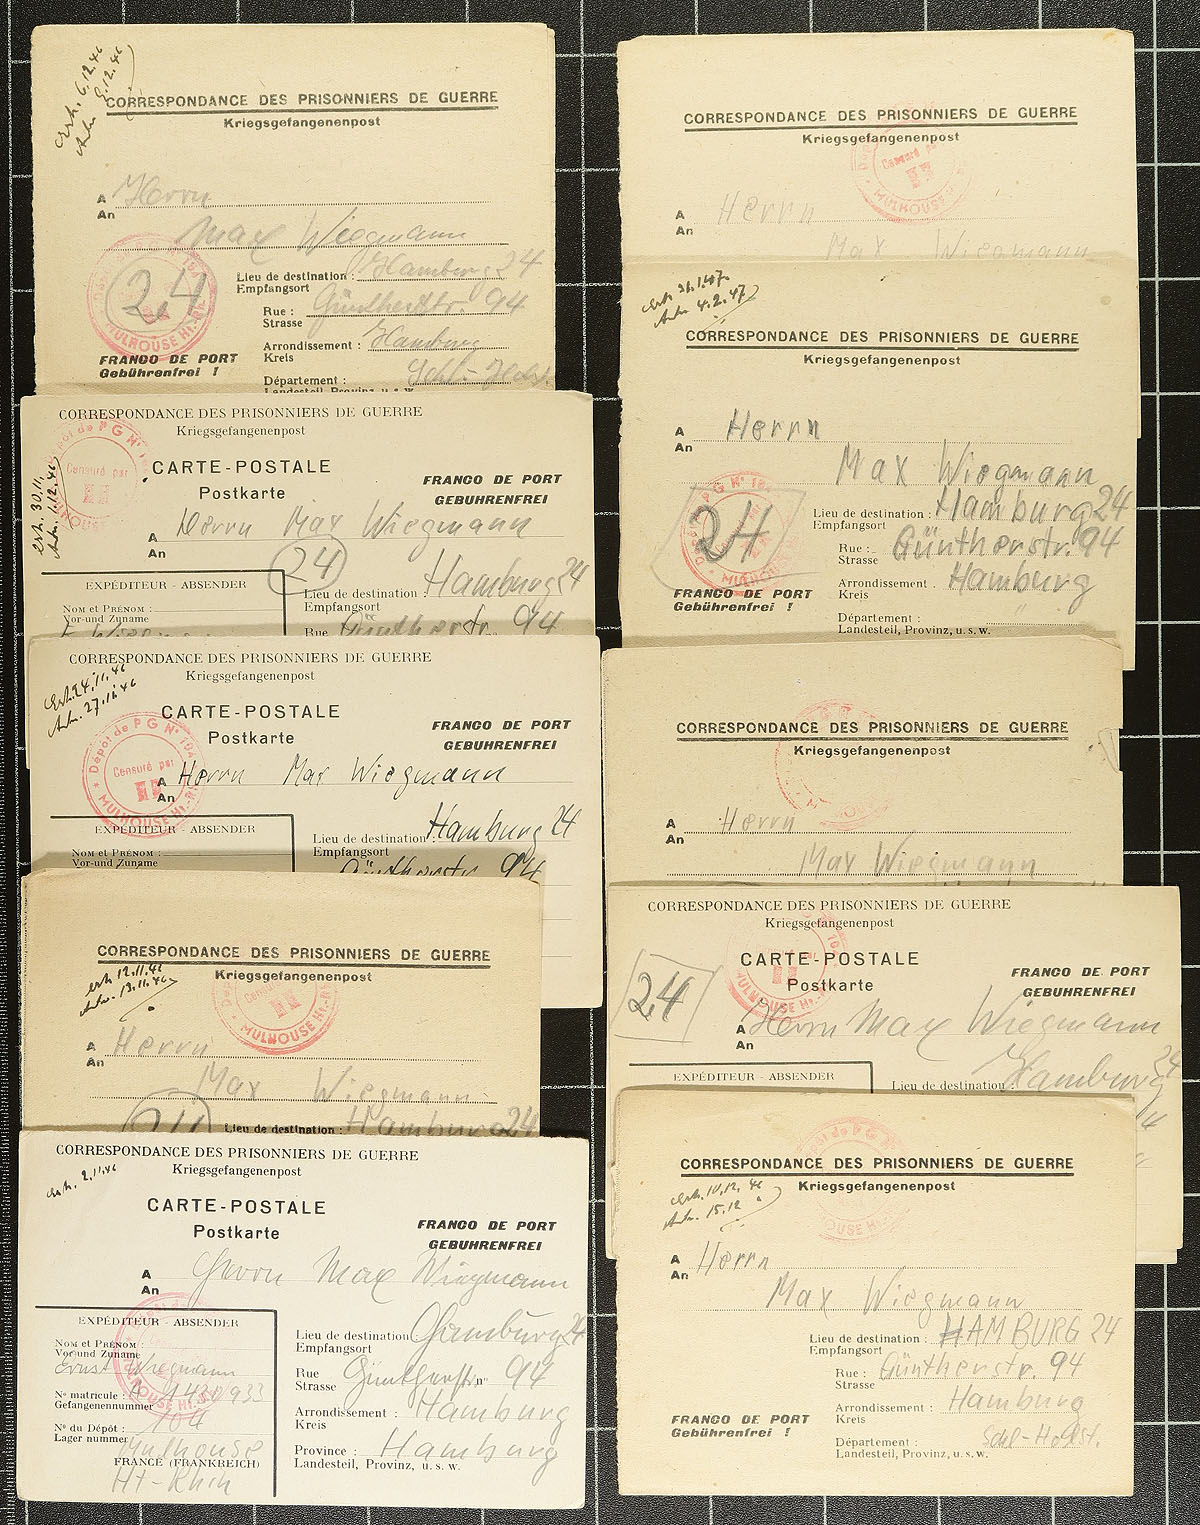 erh. 6.12.46
Antw. 9.12.46
CORRESPONDANCE DES PRISONNIERS DE GUERRE
Kriegsgefangenenpost
A Herrn
An
Max Wiegmann
24
MULHOUSE Ht.-Rh.
Lieu de destination : Hamburg 24
Empfangsort
Rue : Güntherstr. 94
Strasse
Arrondissement : Hamburg
Kreis
FRANCO DE PORT
Gebührenfrei !
Département :
Landesteil, Provinz, u.s.w.
CORRESPONDANCE DES PRISONNIERS DE GUERRE
Kriegsgefangenenpost
Dépôt de P G N°
Censuré par
erh. 30.11.
Antw. 1.12.46
CARTE-POSTALE
Postkarte
FRANCO DE PORT
GEBUHRENFREI
A Herrn Max Wiegmann
An
24
EXPÉDITEUR - ABSENDER
Nom et Prénom :
Vor-und Zuname
Lieu de destination : Hamburg 24
Empfangsort
Rue Güntherstr. 94
CORRESPONDANCE DES PRISONNIERS DE GUERRE
Kriegsgefangenenpost
erh. 24.11.46
Antw. 27.11.46
CARTE-POSTALE
Postkarte
FRANCO DE PORT
GEBUHRENFREI
Dépôt de P G N° 104
Censuré par
MULHOUSE Ht.-Rh.
A Herrn Max Wiegmann
An
EXPÉDITEUR - ABSENDER
Nom et Prénom :
Vor-und Zuname
Lieu de destination : Hamburg 24
Empfangsort
Güntherstr. 94
CORRESPONDANCE DES PRISONNIERS DE GUERRE
Kriegsgefangenenpost
erh. 12.11.46
Antw. 13.11.46
MULHOUSE Ht.-Rh.
A Herrn
An
Max Wiegmann
24
Lieu de destination : Hamburg 24
CORRESPONDANCE DES PRISONNIERS DE GUERRE
Kriegsgefangenenpost
erh. 2.11.46
CARTE-POSTALE
Postkarte
FRANCO DE PORT
GEBUHRENFREI
A Herrn Max Wiegmann
An
EXPÉDITEUR - ABSENDER
Nom et Prénom :
Vor-und Zuname
Ernst Wiegmann
N° matricule : A 1430933
Gefangenennummer
N° du Dépôt : 104
Lager nummer
Mulhouse
FRANCE (FRANKREICH)
Ht-Rhin
Lieu de destination : Hamburg 24
Empfangsort
Rue Güntherstr. n° 94
Strasse
Arrondissement : Hamburg
Kreis
Province : Hamburg
Landesteil, Provinz, u.s.w.
CORRESPONDANCE DES PRISONNIERS DE GUERRE
Kriegsgefangenenpost
Censuré par
MULHOUSE
A Herrn
An
Max Wiegmann
erh. 31.1.47
Antw. 4.2.47
CORRESPONDANCE DES PRISONNIERS DE GUERRE
Kriegsgefangenenpost
A Herrn
An
Max Wiegmann
24
Lieu de destination : Hamburg 24
Empfangsort
Rue : Güntherstr. 94
Strasse
Arrondissement : Hamburg
Kreis
FRANCO DE PORT
Gebührenfrei !
Département :
Landesteil, Provinz, u.s.w.
CORRESPONDANCE DES PRISONNIERS DE GUERRE
Kriegsgefangenenpost
A Herrn
An
Max Wiegmann
CORRESPONDANCE DES PRISONNIERS DE GUERRE
Kriegsgefangenenpost
CARTE-POSTALE
Postkarte
FRANCO DE PORT
GEBUHRENFREI
24
MULHOUSE Ht.-
A Herrn Max Wiegmann
An
EXPÉDITEUR - ABSENDER
Lieu de destination : Hamburg 24
CORRESPONDANCE DES PRISONNIERS DE GUERRE
Kriegsgefangenenpost
erh. 10.12.46
Antw. 15.12
A Herrn
An
Max Wiegmann
Lieu de destination : HAMBURG 24
Empfangsort
Rue : Güntherstr. 94
Strasse
Arrondissement : Hamburg
Kreis
FRANCO DE PORT
Gebührenfrei !
Département : Schl-Holst.
Landesteil, Provinz, u.s.w.